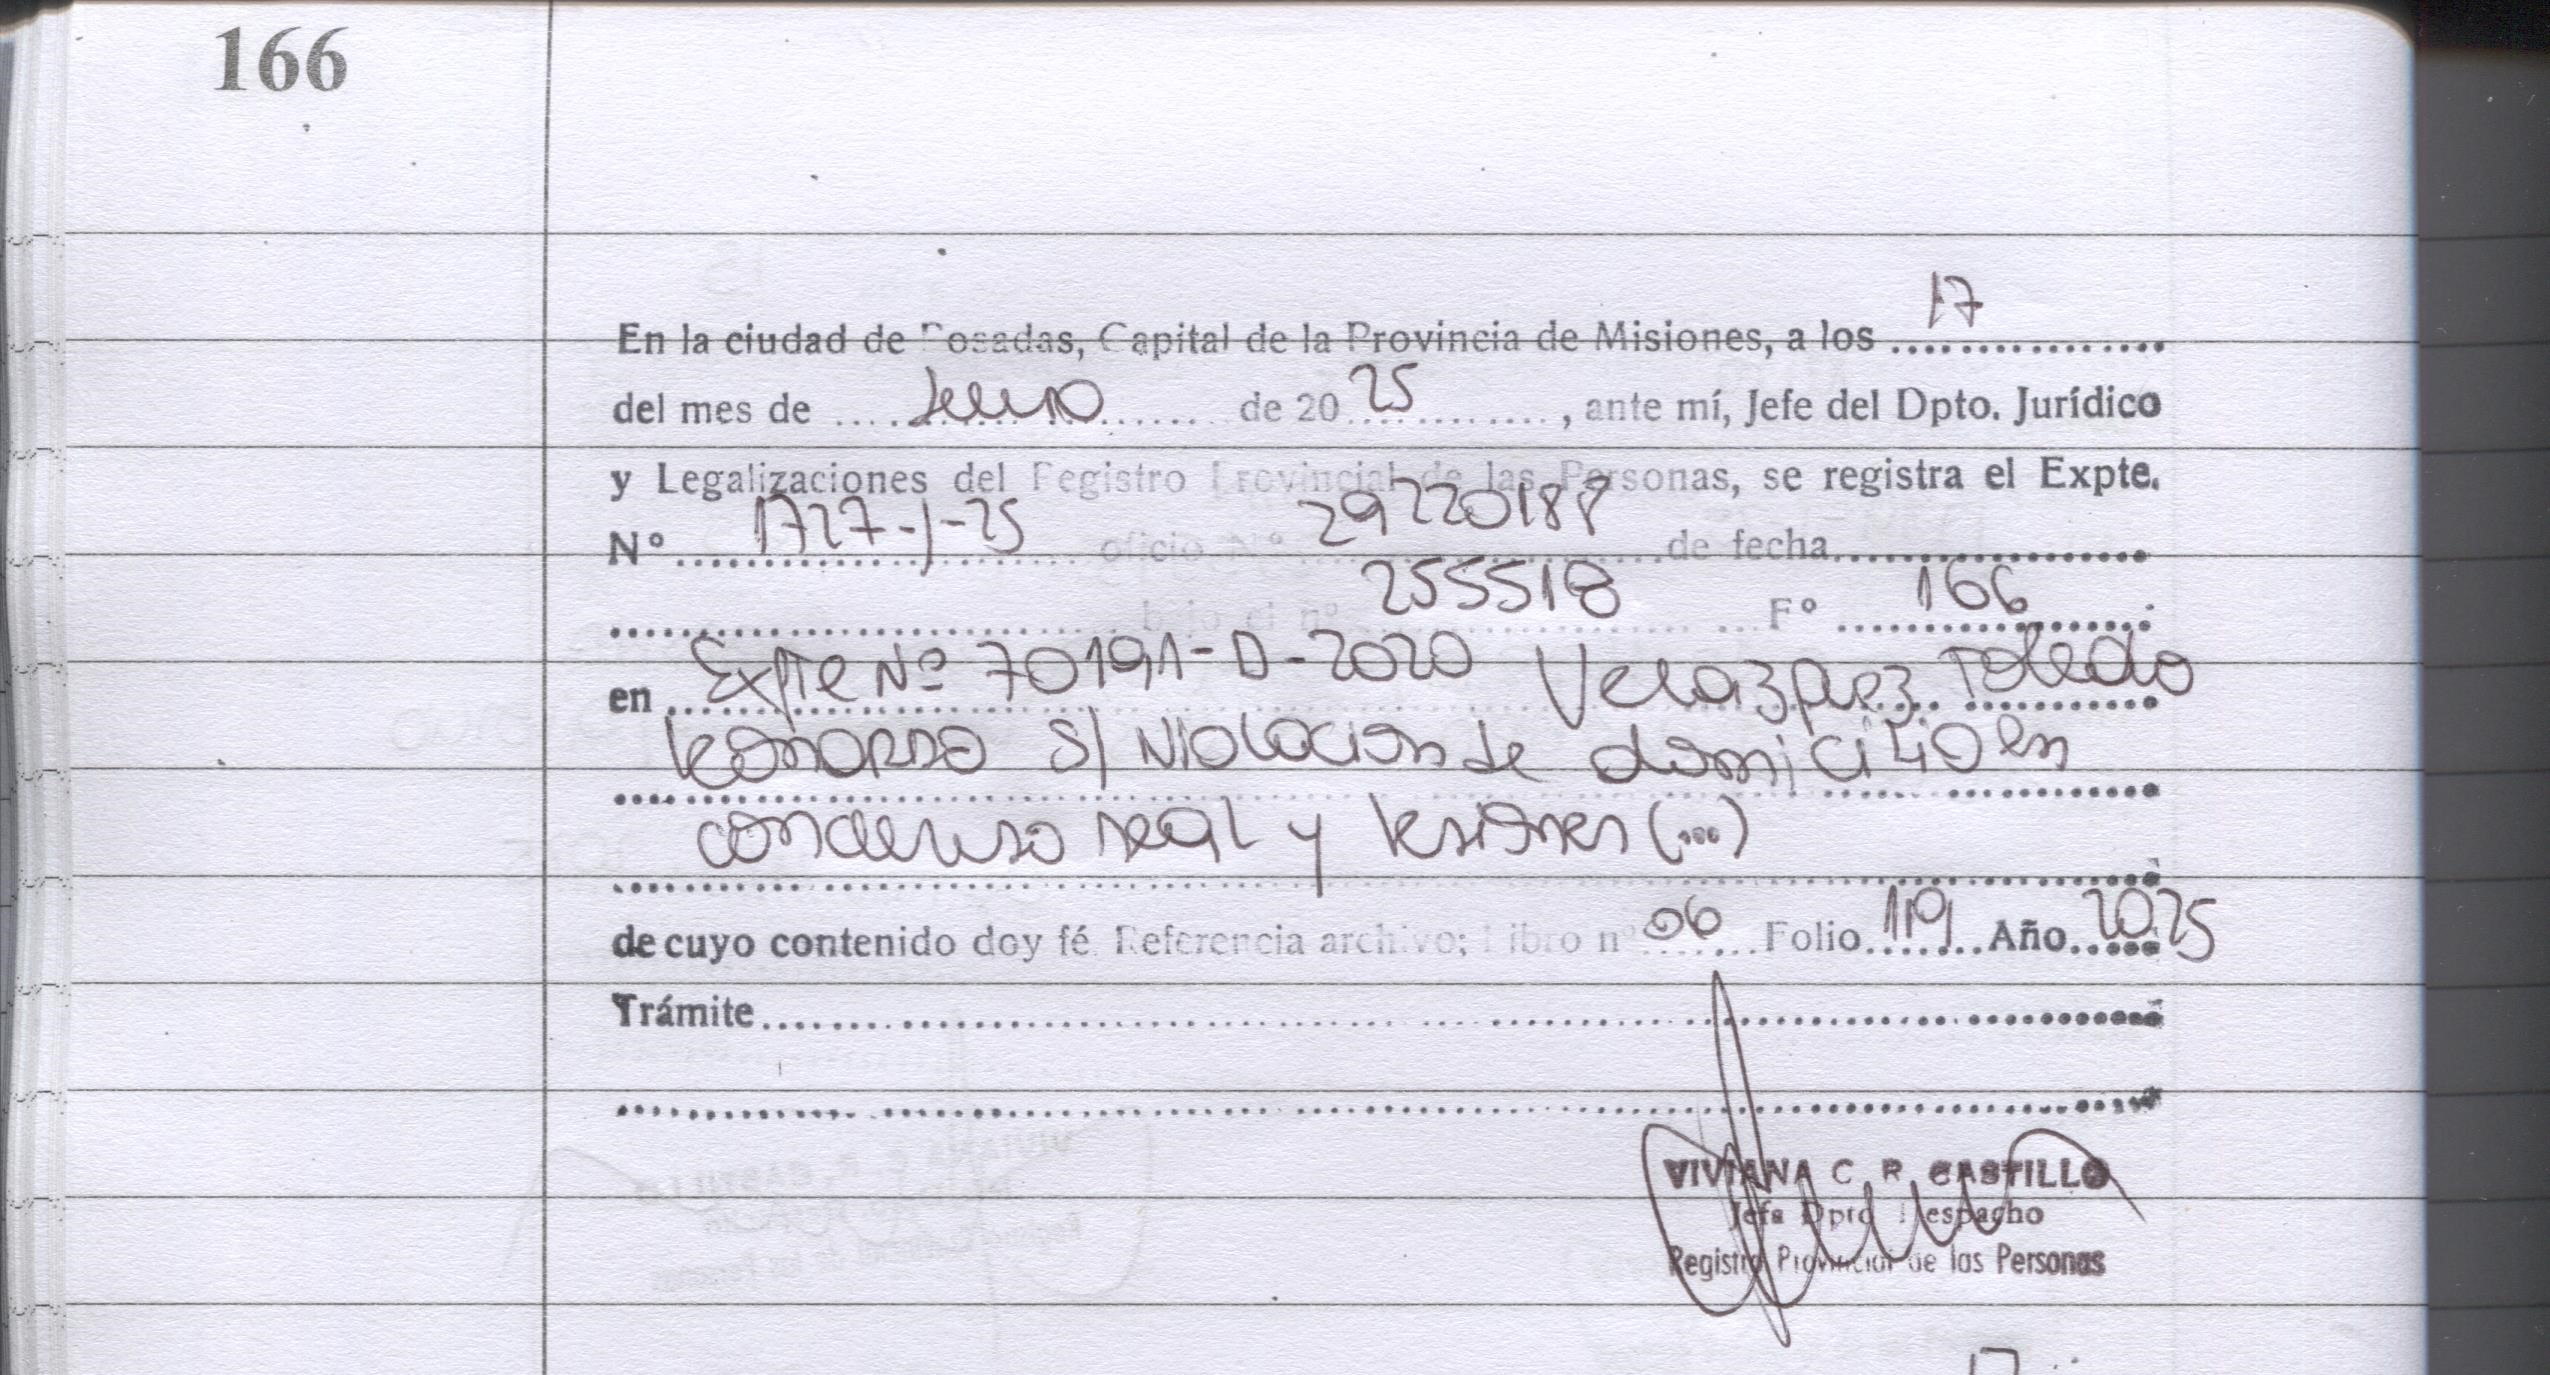 166
En la ciudad de Posadas, Capital de la Provincia de Misiones, a los 17
del mes de Junio de 20 25, ante mí, Jefe del Dpto. Jurídico
y Legalizaciones del Registro Provincial de las Personas, se registra el Expte.
Nº 1727-J-25 oficio Nº 29220188 de fecha
bajo el nº 255518 Fº 166
en Expte Nº 70191-D-2020 Velazquez Toledo
Leonardo S/ Violacion de domicilio en
concurso real y lesiones (...)
de cuyo contenido doy fé Referencia archivo; Libro nº 06 Folio 119 Año 2025
Trámite
VIVIANA C. R. CASTILLO
Jefa Dpto Despacho
Registro Provincial de las Personas
17